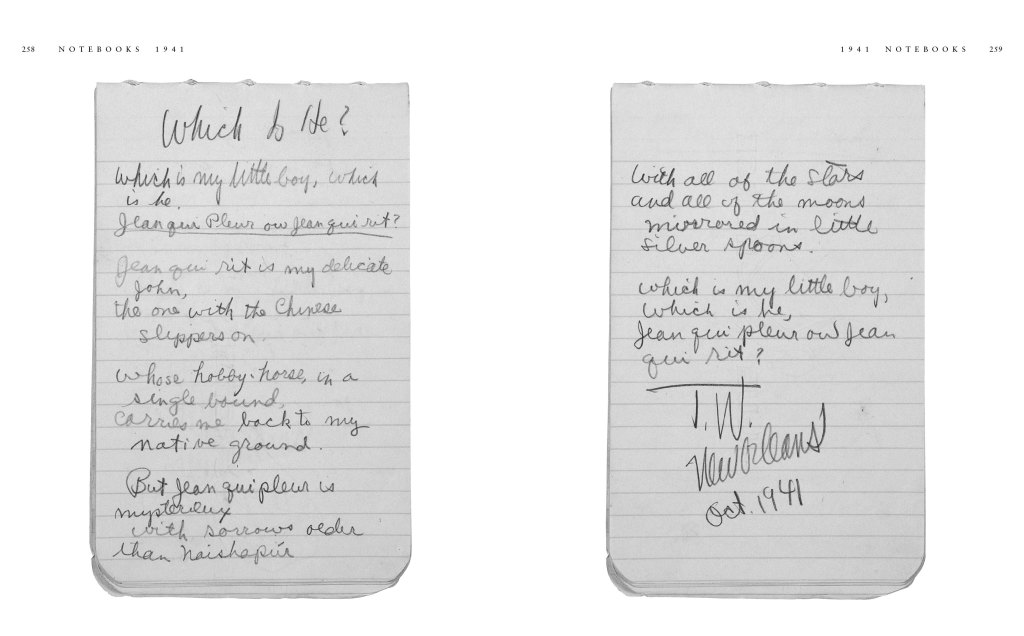 258 NOTEBOOKS 1941
Which Is He?
Which is my little boy, which
is he,
Jean qui Pleur ou Jean qui rit?
Jean qui rit is my delicate
John,
the one with the Chinese
slippers on.
whose hobby-horse, in a
single bound,
carries me back to my
native ground.
But Jean qui pleur is
mysterieux
with sorrows older
than Naishapur
1941 NOTEBOOKS 259
With all of the stars
and all of the moons
mirrored in little
silver spoons.
which is my little boy,
which is he,
Jean qui pleur ou Jean
qui rit?
T.W.
New Orleans
Oct. 1941